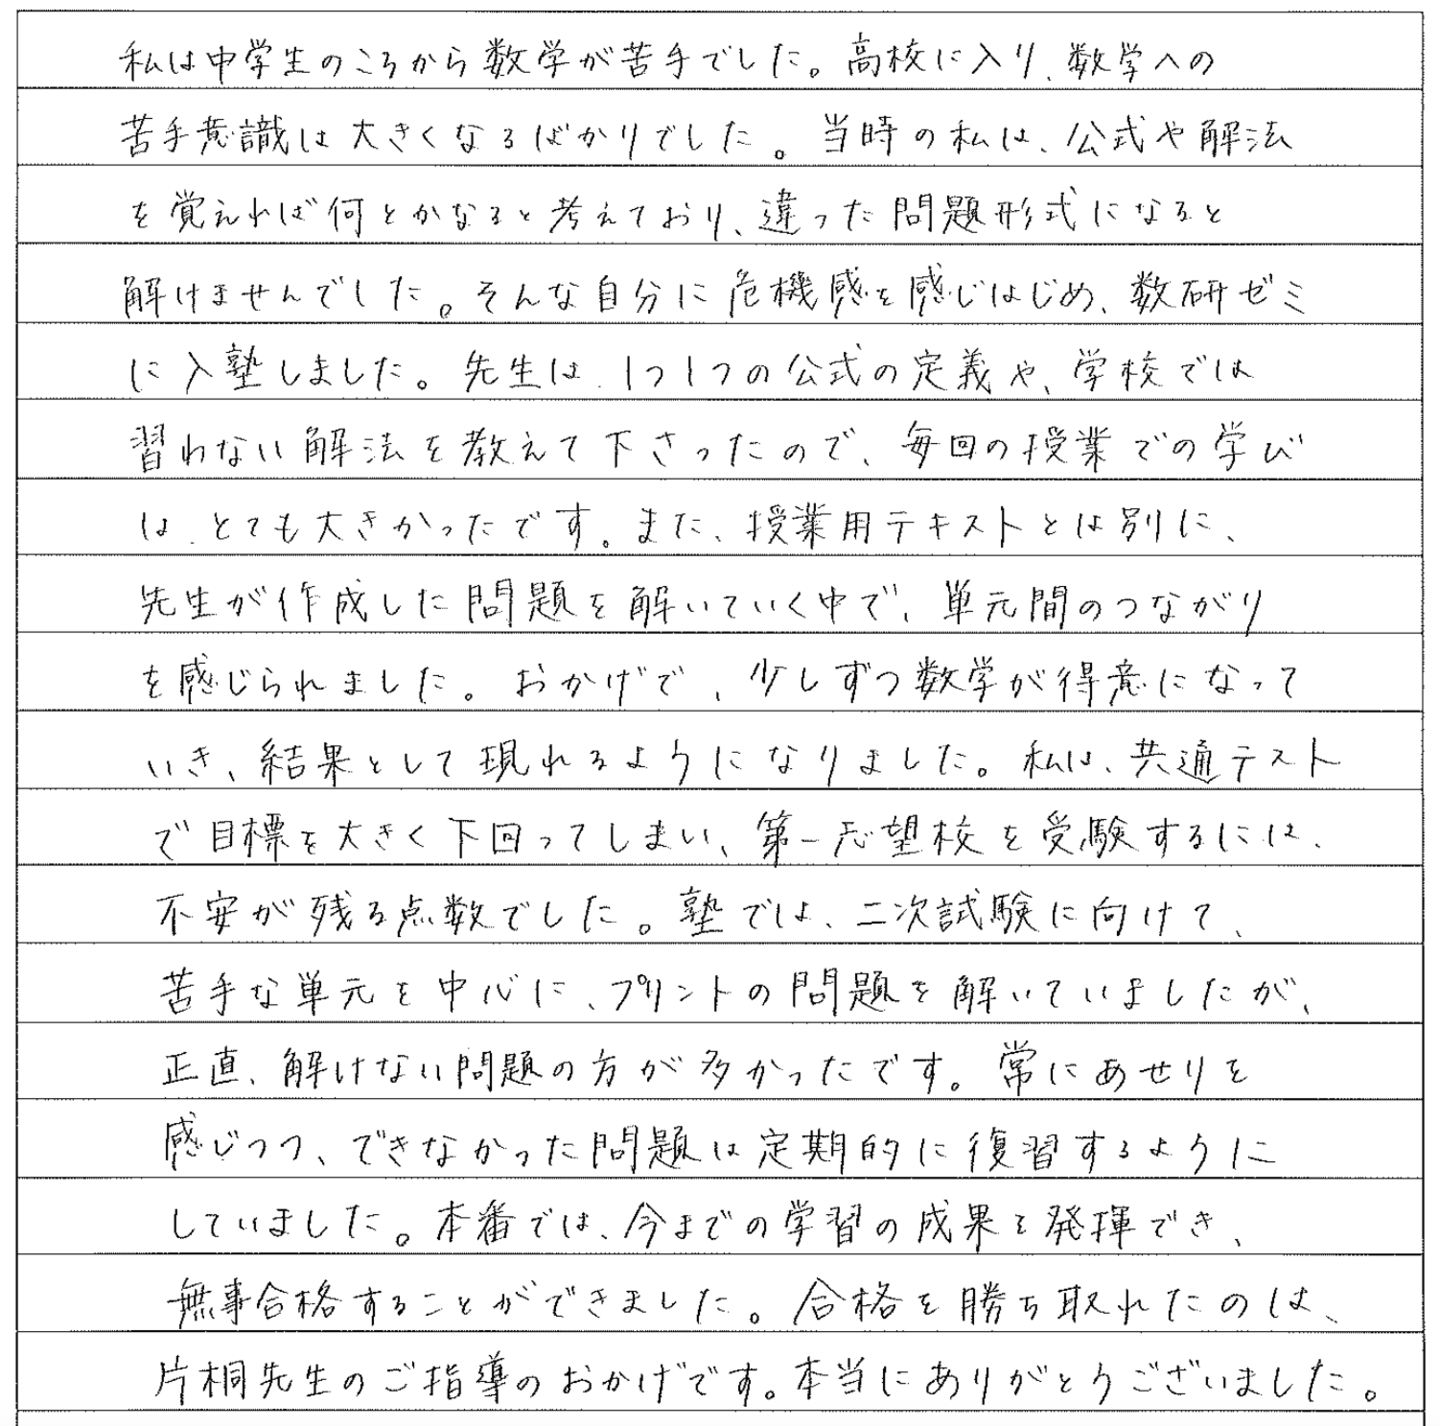 私は中学生のころから数学が苦手でした。高校に入り、数学への
苦手意識は大きくなるばかりでした。当時の私は、公式や解法
を覚えれば何とかなると考えており、違った問題形式になると
解けませんでした。そんな自分に危機感を感じはじめ、数研ゼミ
に入塾しました。先生は、1つ1つの公式の定義や、学校では
習わない解法を教えて下さったので、毎回の授業での学び
は、とても大きかったです。また、授業用テキストとは別に、
先生が作成した問題を解いていく中で、単元間のつながり
を感じられました。おかげで、少しずつ数学が得意になって
いき、結果として現れるようになりました。私は、共通テスト
で目標を大きく下回ってしまい、第一志望校を受験するには、
不安が残る点数でした。塾では、二次試験に向けて、
苦手な単元を中心に、プリントの問題を解いていましたが、
正直、解けない問題の方が多かったです。常にあせりを
感じつつ、できなかった問題は定期的に復習するように
していました。本番では、今までの学習の成果を発揮でき、
無事合格することができました。合格を勝ち取れたのは、
片桐先生のご指導のおかげです。本当にありがとうございました。